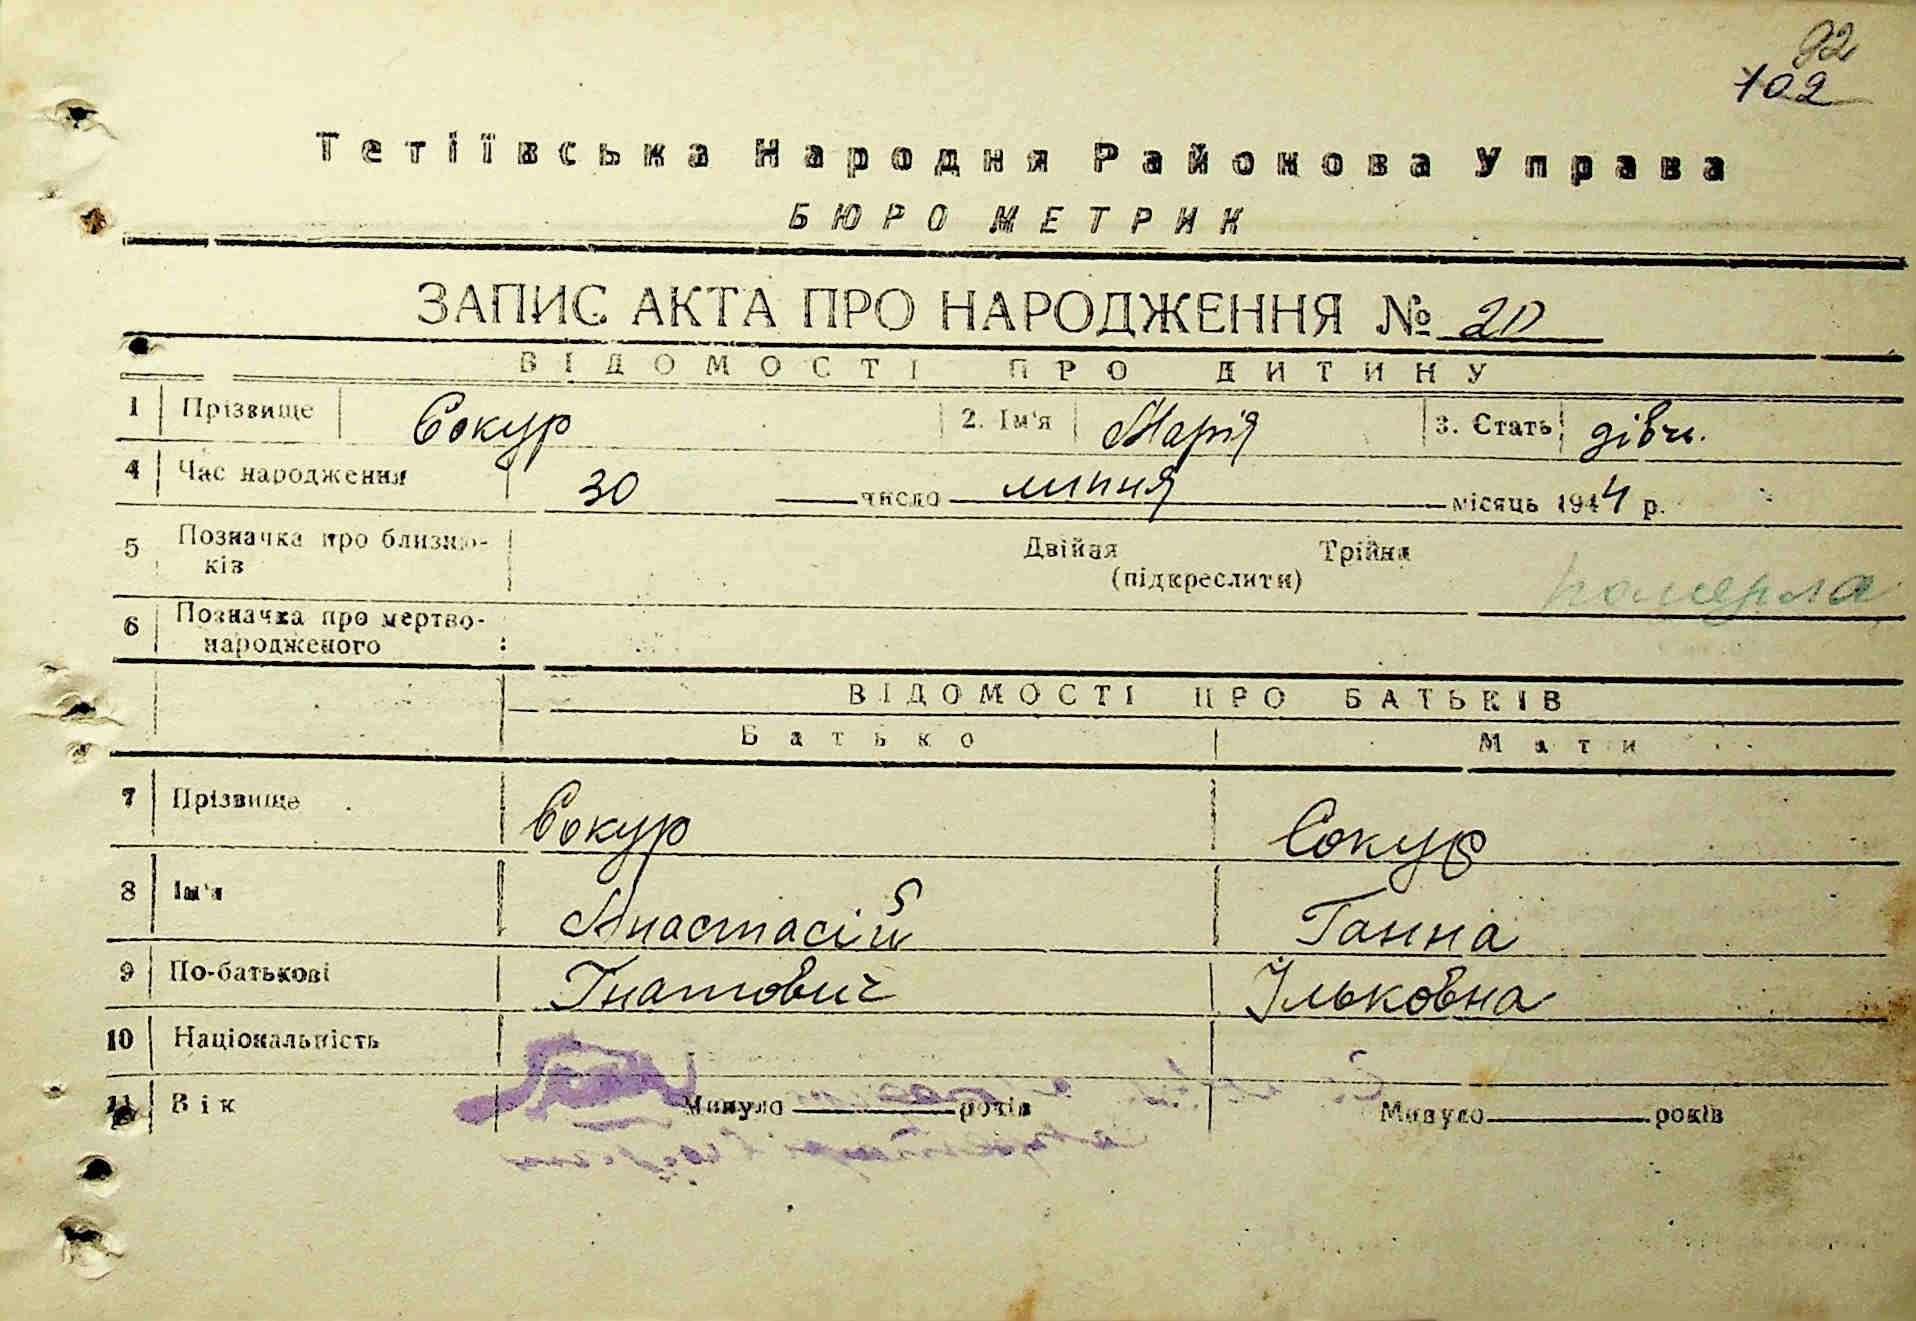 92
102
Тетіївська Народня Районова Управа
БЮРО МЕТРИК
ЗАПИС АКТА ПРО НАРОДЖЕННЯ № 20
ВІДОМОСТІ ПРО ДИТИНУ
1 Прізвище Сокур 2. Ім'я Марія 3. Стать дівч.
4 Час народження 30 число липня місяць 1944 р.
5 Позначка про близню-
ків
Двійня Трійня
(підкреслити)
померла
6 Позначка про мертво-
народженого
ВІДОМОСТІ ПРО БАТЬКІВ
Батько Мати
7 Прізвище Сокур Сокур
8 Ім'я Анастасій Ганна
9 По-батькові Гнатович Ільковна
10 Національність
11 Вік Минуло років Минуло років